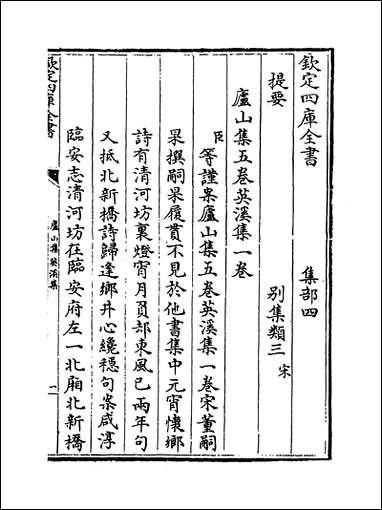 欽定四庫全書　集部四
提要　別集類三宋
廬山集五卷英溪集一卷
臣等謹案廬山集五卷英溪集一卷宋董嗣
杲撰嗣杲履貫不見於他書集中元宵懷鄉
詩有清河坊裏燈宵月負却東風已兩年句
又抵北新橋詩歸逢鄉井心纔穩句案咸淳
臨安志清河坊在臨安府左一北廂北新橋
欽定四庫全書
廬山集英溪集
一